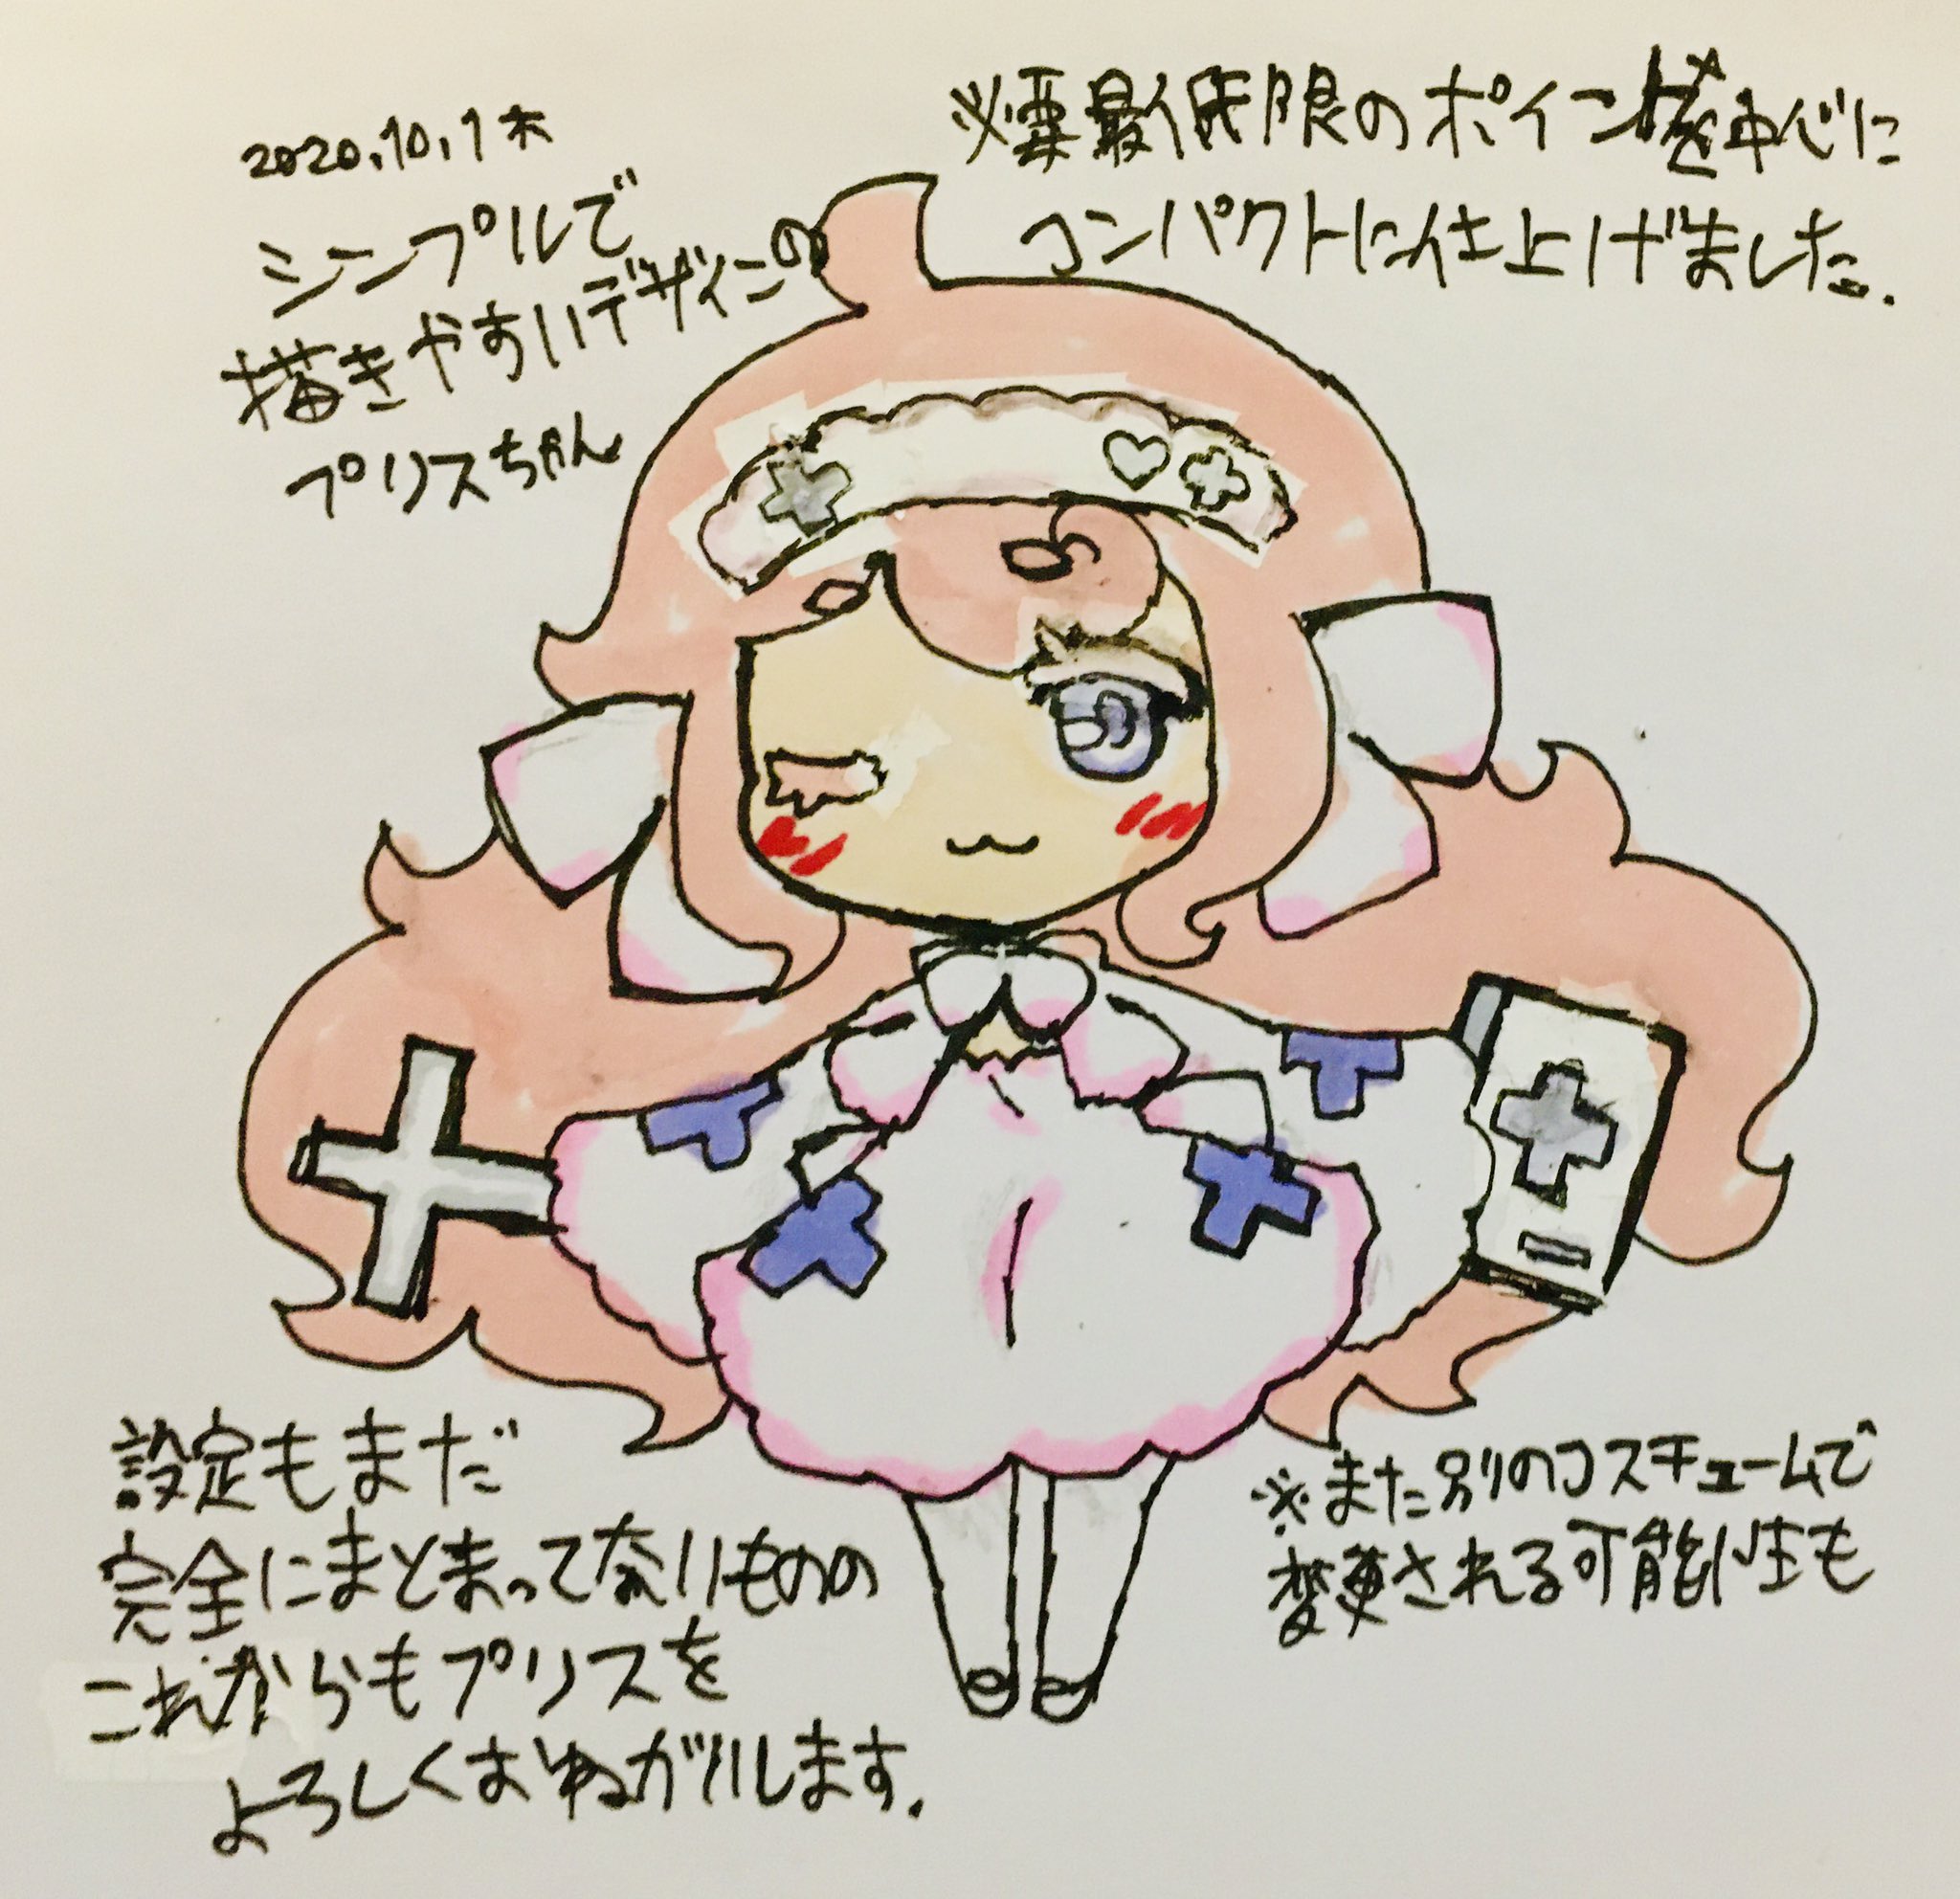 2020.10.1木
シンプルで
描きやすいデザインの
プリスちゃん
※要最低限のポイントを中心に
コンパクトに仕上げました.
設定もまだ
完全にまとまって奈いものの
これからもプリスを
よろしくおねがいします.
※また別のコスチュームで
変更される可能性も